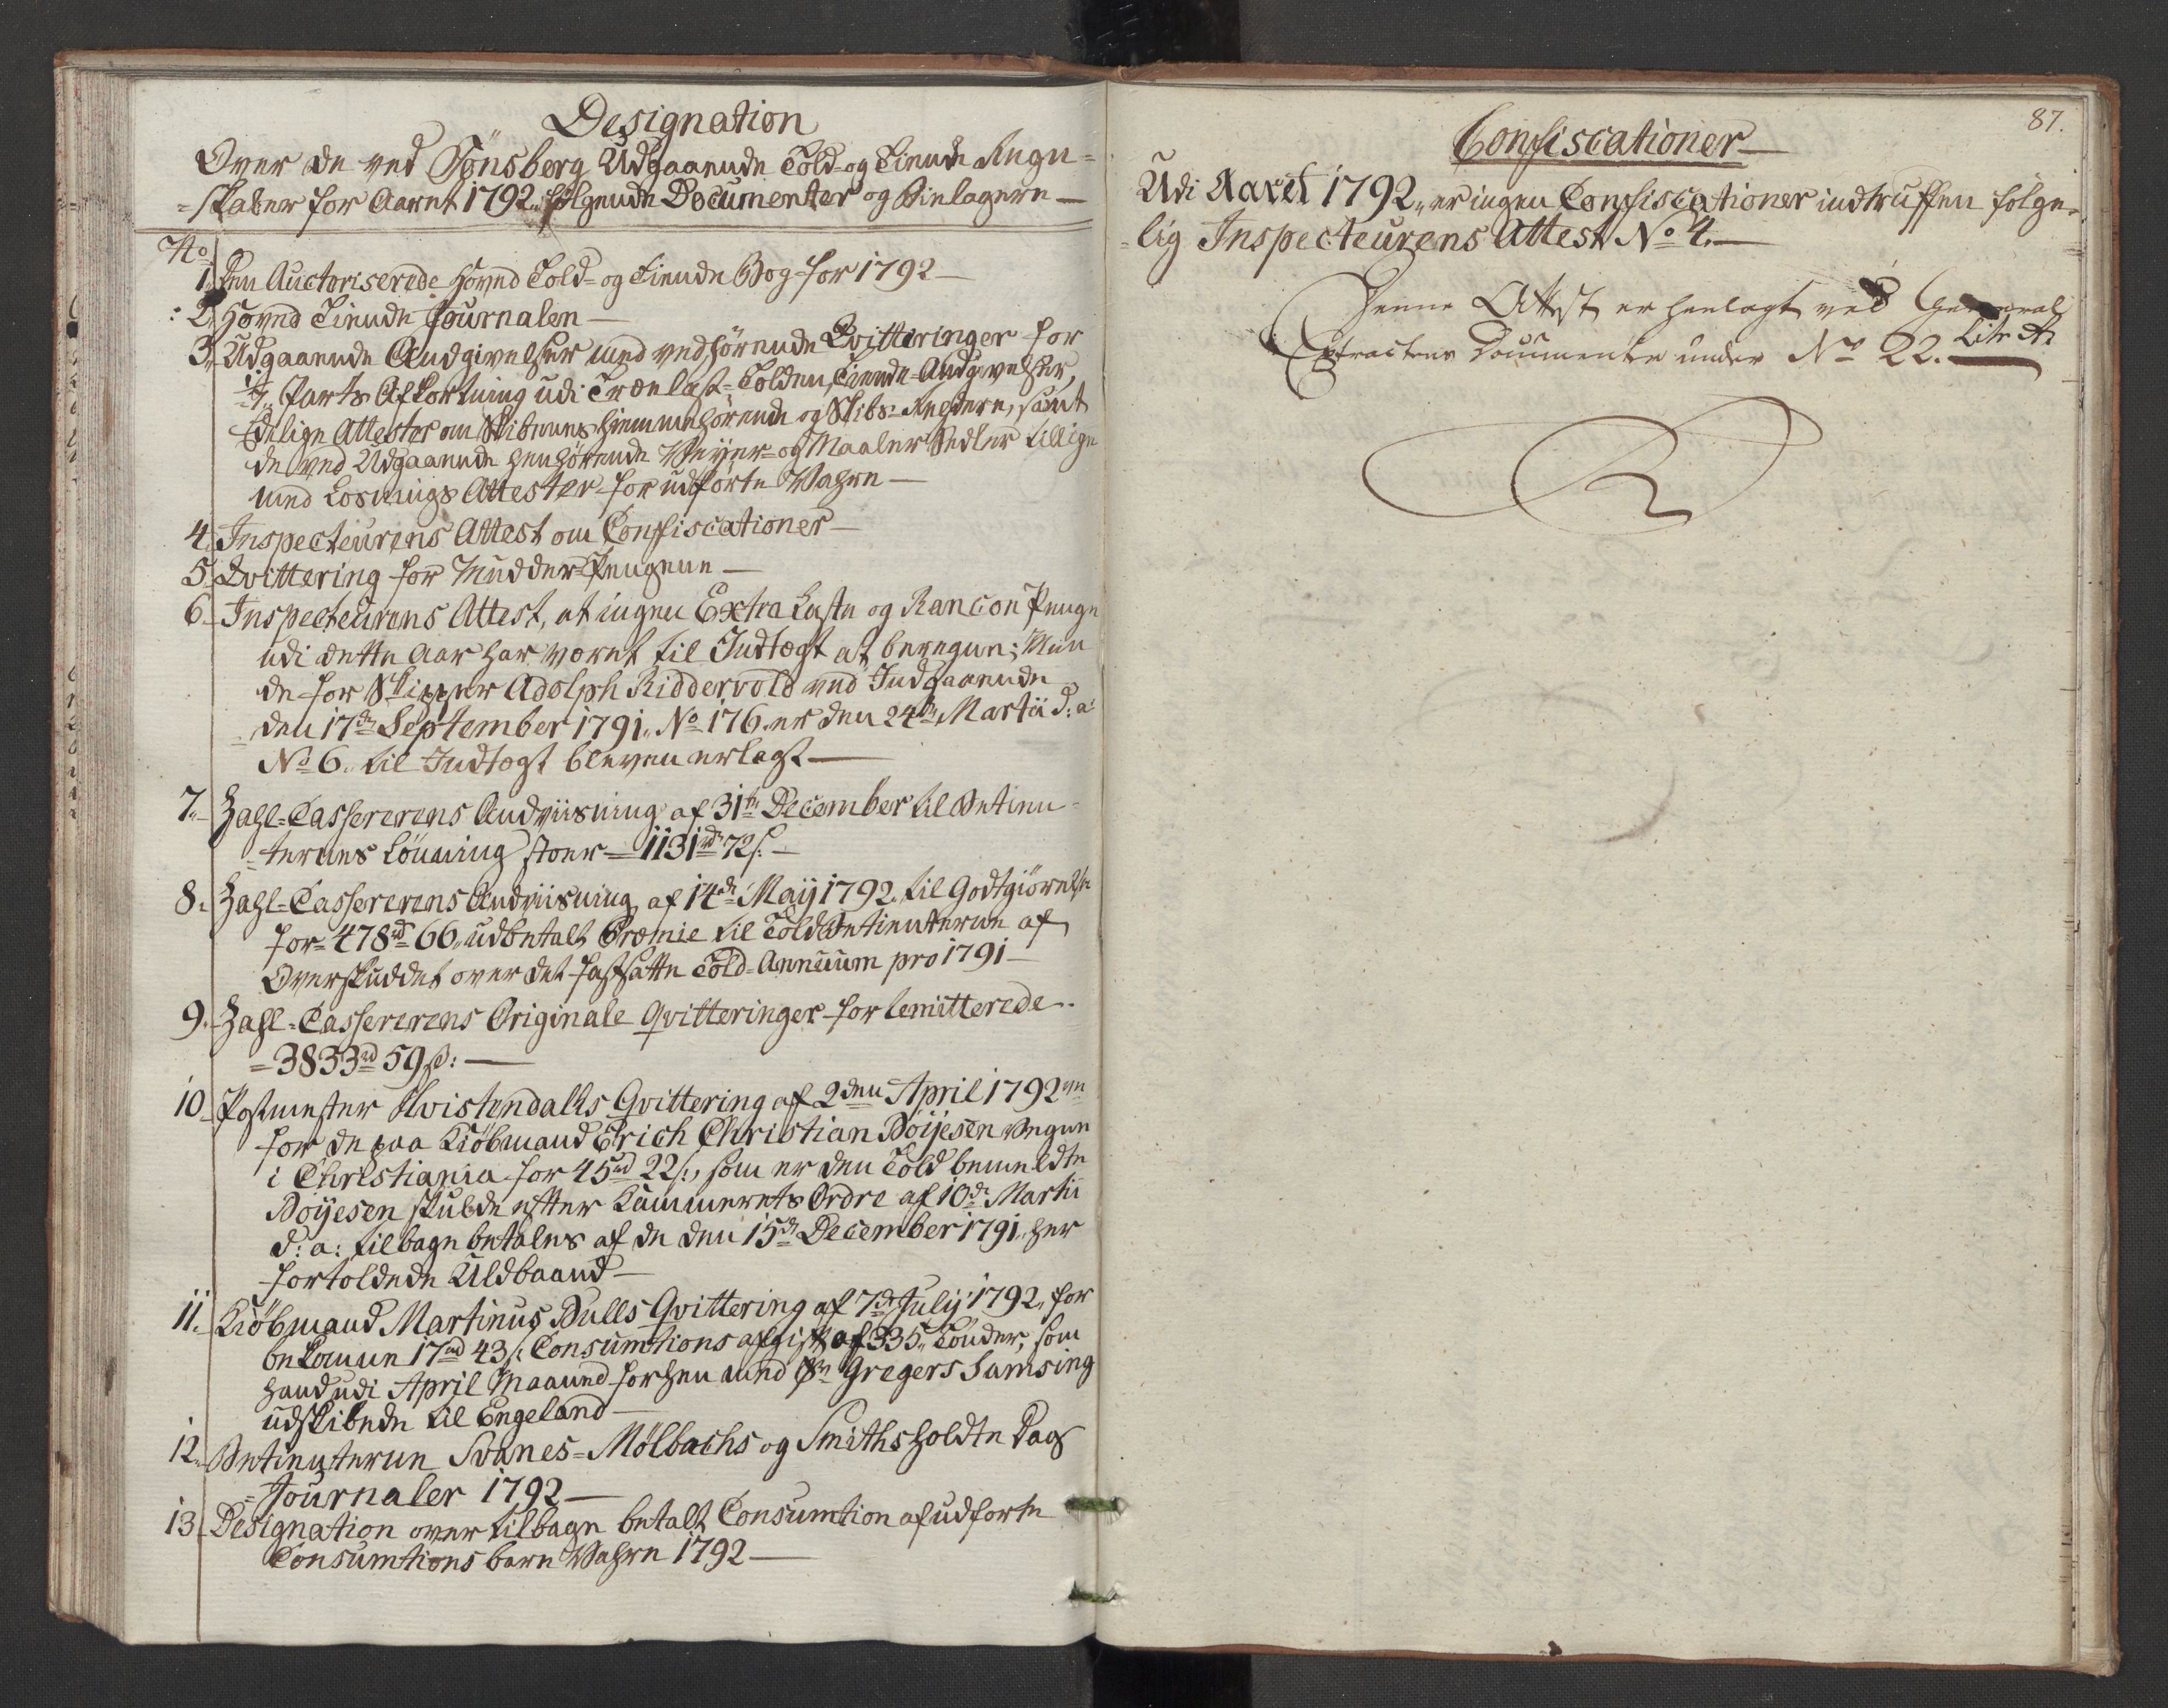 Designation
Over de ved Tönsberg Udgaaende Told- og Tiende Regn=
=skaber for Aaret 1792,, følgende Documenter og Bielagere —
No
1,, Den Auctoriserede Hoved Told- og Tiende Bog for 1792 —
2,, Hoved Tiende Journalen —
3,, Udgaaende Andgivelser med vedhörende Qvitteringer for
Parts Afkortning udi Trælast-Tolden, Tiende-Andgivelser,
Edelige Attester om Skibenes hiemmehörende og Skibs-Rhedere, samt
de ved Udgaaende henhörende Veyer- og Maaler Sedler tillige
med Losnings Attester for udförte Vahre —
4,, Inspecteurens Attest om Confiscationer —
5,, Qvittering for Mudder-Pengene —
6,, Inspecteurens Attest, at ingen Extra Laste og Rancon Penge
udi dette Aar har været til Indtægt at beregne; Men
de for Skipper Adolph Riddervold ved Indgaaende
den 17de September 1791,, No 176 er den 24de Martii d: a:
No 6,, til Indtægt bleven erlagt —
7,, Zahl-Casserernes Andviisning af 31te December til Betien-
=ternes Lönning stoer — 1131rd 72s. —
8,, Zahl-Cassererens Andviisning af 14de Maij 1792 til Godtgiörelse
for 478rd 66,, udbetalt Præmie til Toldbetienterne af
Overskuddet over det fastsatte Told-Annuum pro 1791 —
9,, Zahl-Cassererens Originale Qvitteringer for remitterede
= 3833rd 59s: —
10,, Postmester Hvistendalls Qvittering af 2den April 1792
for de paa Kiöbmand Erich Christian Böijesen Vegne
i Christiania for 45rd 22s:, som er den Told bemeldte
Böijesen skulde efter Kammerets Ordre af 10de Martii
d: a: tilbage betales af de den 15de December 1791,, her
fortoldede Uldbaand —
11,, Kiöbmand Martinus Bulls Qvittering af 7de Julij 1792,, for
bekomne 17rd 43s: Consumtions afgift af 335,, Tönder, som
hand udi April Maaned forhen med Sr Gregers Samsing
udskibede til Engeland —
12,, Betienterne Svanes- Mölbachs og Smiths holdte Dag
=Journaler 1792 —
13,, Designation over tilbage betalt Consumtion af udförte
Consumtions bare Vahre 1792 —
87.
Confiscationer
Udi Aaret 1792,, er ingen Confiscationer indtruffen fölge-
=lig Inspecteurens Attest No 4. —
Denne Attest er henlagt ved General
Extractens Documenter under No 22. Litr A.